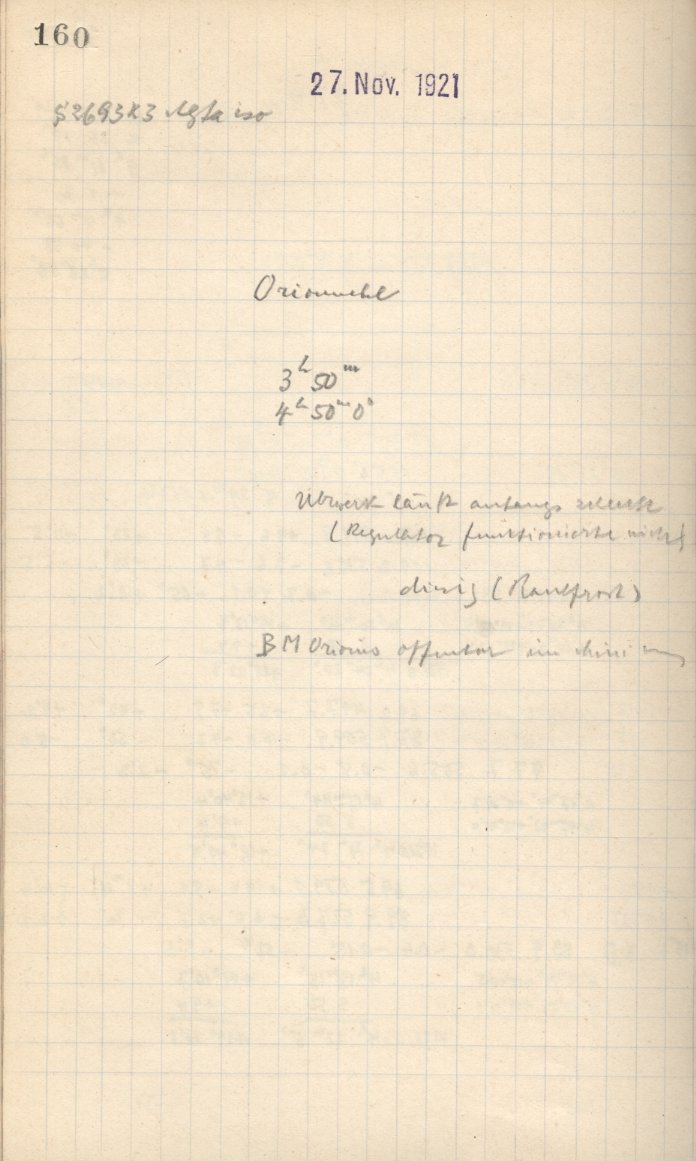 160
27. Nov. 1921
S2693K3 Agfa iso
Orionnebel
3h 50m
4h 50m 0s
Uhrwerk läuft anfangs schlecht
(Regulator funktionierte nicht)
diesig (Rauhfrost)
BM Orionis offenbar im Minimum